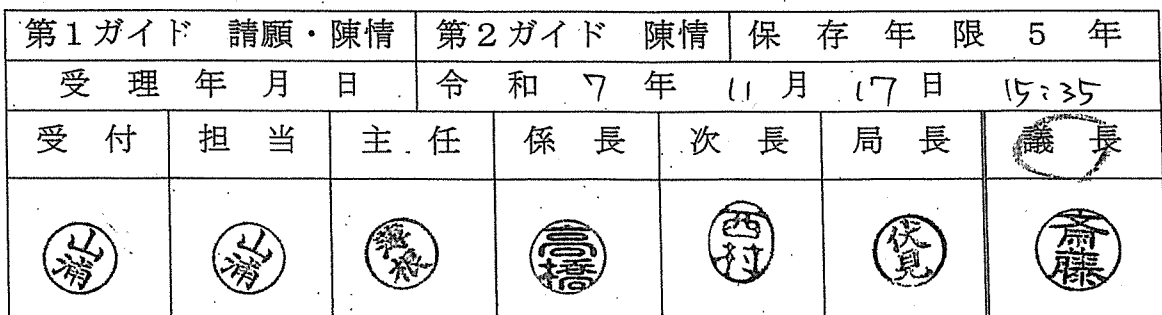 第1ガイド 請願・陳情 第2ガイド 陳情 保存年限 5年
受理年月日 令和7年11月17日 15:35
受付 担当 主任 係長 次長 局長 議長
山浦 山浦 高橋 西村 伏見 斎藤